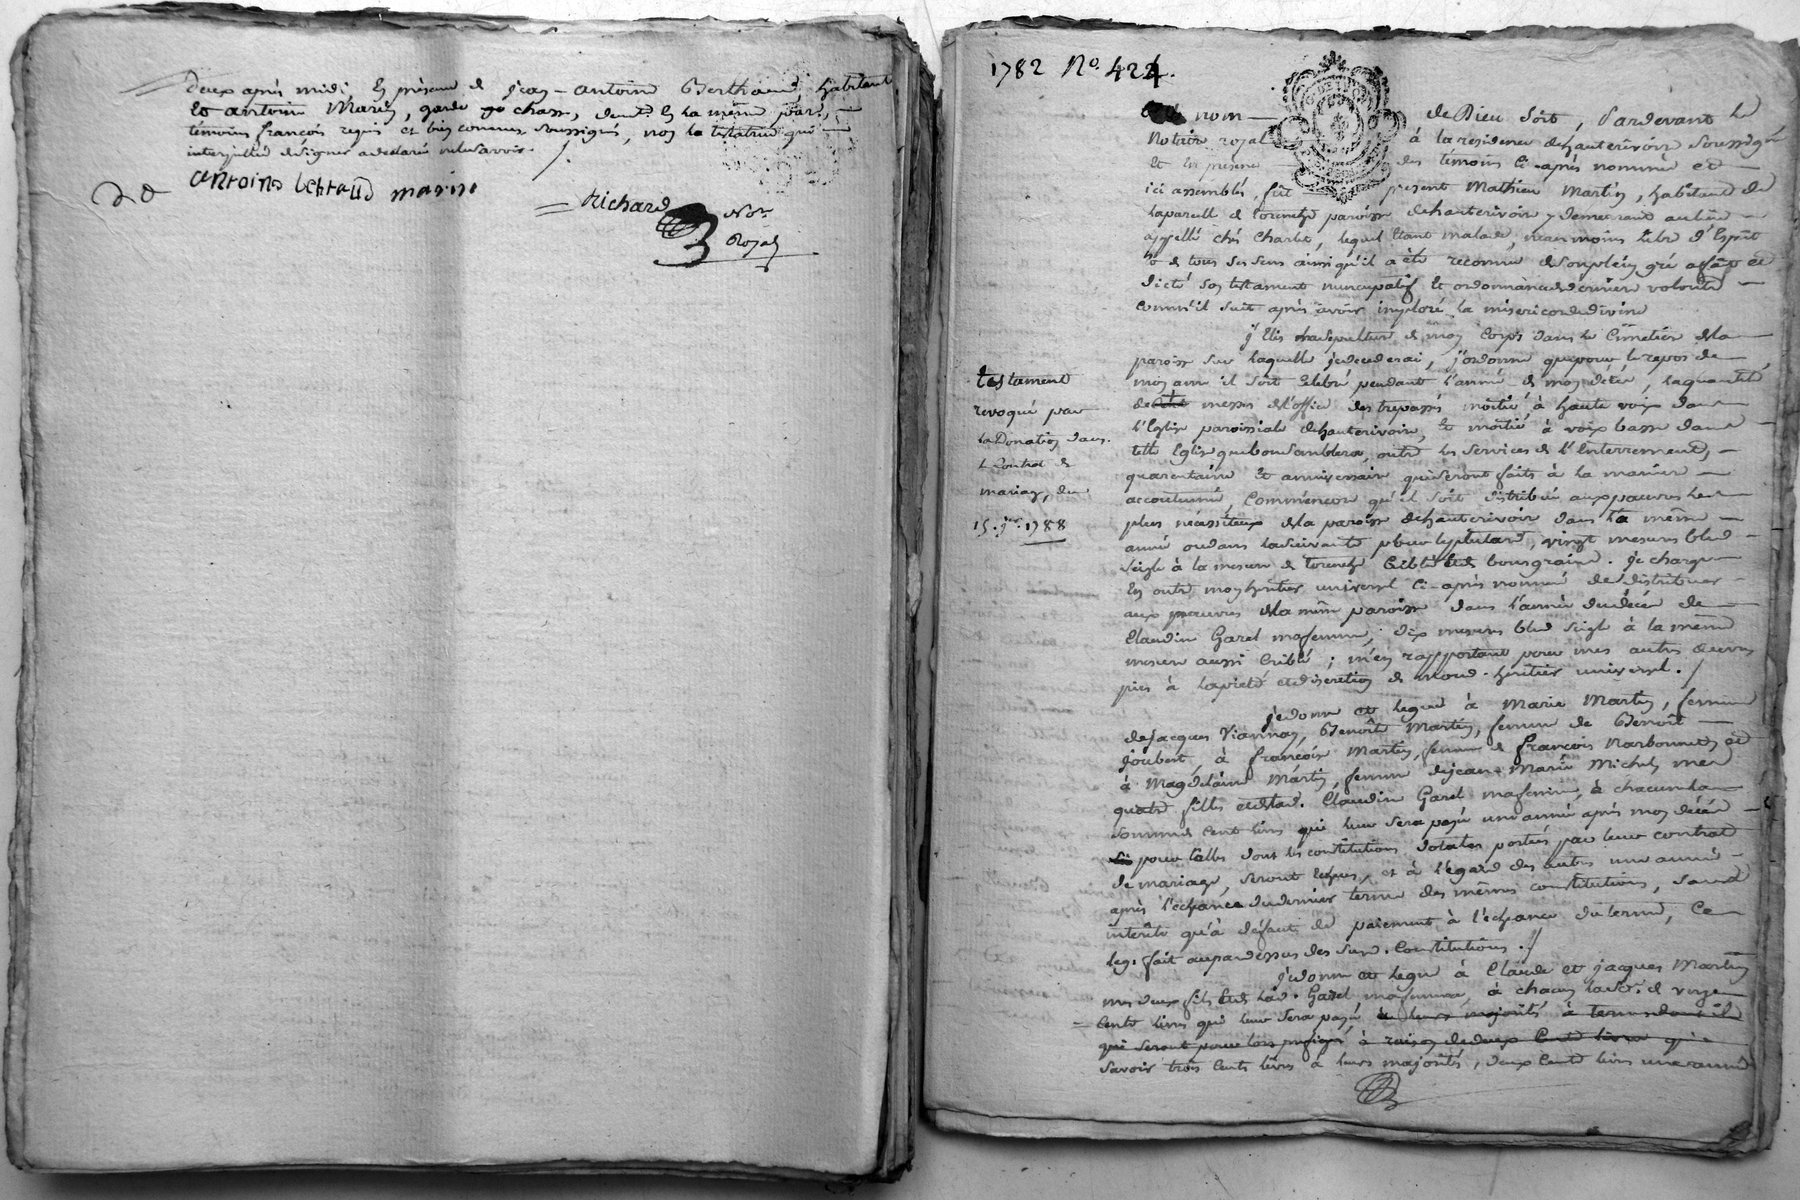 deux après midi, en présence de jean-antoine Berthaud, habitant
et antoine Marin, garde de chasse, demt. en la même parr.,
témoins françois requis et bien connus soussignés, non la testatrice qui
interpellée de signer a declaré ne le savoir ./
antoine bertaud marin
Richard
Nore.
Royal
1782 No. 424.
Au nom de Dieu soit, Pardevant le
Notaire royal à la residence de hauterivoire soussigné
et en présence des temoins ci-après nommés et
ici assemblés, fut présent Mathieu Martin, habitant de
la parcelle de paroisse de hauterivoire y demeurant au lieu
appellé chés Charlet, lequel etant malade, neanmoins libre d'Esprit
et de tous ses sens ainsi qu'il a été reconnu de son plein gré a fait et
dicté son testament nuncupatif et ordonnance de derniere volonté
comme il suit après avoir imploré la misericorde divine
j'Elis ma sepulture de mon corps dans le Cimetière de la
paroisse sur laquelle je decederai, j'ordonne que pour le repos de
mon ame il soit celebré pendant l'année de mon décés, la quantité
de messes de l'office des trepassés moitié à haute voix dans
l'Eglise paroissiale de hauterivoire, et moitié à voix basse dans
telle Eglise que bon semblera, outre les services de l'Enterrement,
quarantaine et anniversaire qui seront faits à la maniere
accoutumée, comm'encore qu'il soit distribué aux pauvres les
plus nécessiteux de la paroisse de hauterivoire dans la même
année ou dans la suivante pour le plutard, vingt mesures bled
seigle à la mesure de criblé et de bon grain. je charge
en outre mon heritier universel ci-après nommé de distribuer
aux pauvres de la même paroisse dans l'année du décés de
Claudine Garel ma femme, dix mesures bled seigle à la même
mesure aussi criblé ; m'en rapportant pour mes autres œuvres
pies à la pieté et discretion de mond. heritier universel ./
je donne et legue à Marie Martin, femme
de Jacques Viannay, Benoîte Martin, femme de Benoît
Joubert, à françoise Martin, femme de françois Narbonnet, et
à Magdelaine Martin, femme de jean-Marie Michel mes
quatre filles et de lad. Claudine Garel ma femme, à chacune la
somme de Cent livres qui leur sera payé une année après mon décés
pour celles dont les constitutions dotales portées par leur contrat
de mariage, seront échues, et à l'égard des autres une année
après l'echeance du dernier terme des mêmes constitutions, sans
interêts qu'à défaut de paiement à l'echeance du terme, ce
legs fait au pardessus des sud. Constitutions ./
je donne et legue à Claude et jacques Martin
mes deux fils et de lad. Garel ma femme, à chacun la so. de
Cents livres qui leur sera payé à leurs majorités à
qui seront pour lors à raison de deux Cents livres
Savoir trois Cents livres à leurs majorités, deux Cents livres une année
testament
revoqué par
la Donation dans
le Contrat de
mariage, du
15. jer. 1788